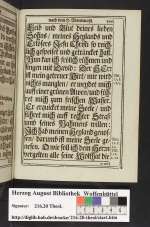 nach dem H. Abendmahl.
Leib und Blut deines lieben
Sohns/ meines Heylands und
Erlösers Jesu Christi so reich-
lich gespeiset und getränckt hast.
Nun kan ich frölich rühmen und
sagen mit David: Der HErr
ist mein getreuer Hirt/ mir wird
nichts mangeln/ er weidet mich
auff einer grünen Auen/ und füh-
ret mich zum frischen Wasser.
Er erquicket meine Seele/ und
führet mich auff rechter Straß
umb seines Nahmens willen.
Ich hab meinen Heyland
darumb ist meine Seele ge-
nesen. O wie soll ich dem Herrn
vergelten alle seine Wolthat die
Herzog August Bibliothek Wolfenbüttel
Signatur: 216.20 Theol.
http://diglib.hab.de/drucke/216-20-theol/start.htm